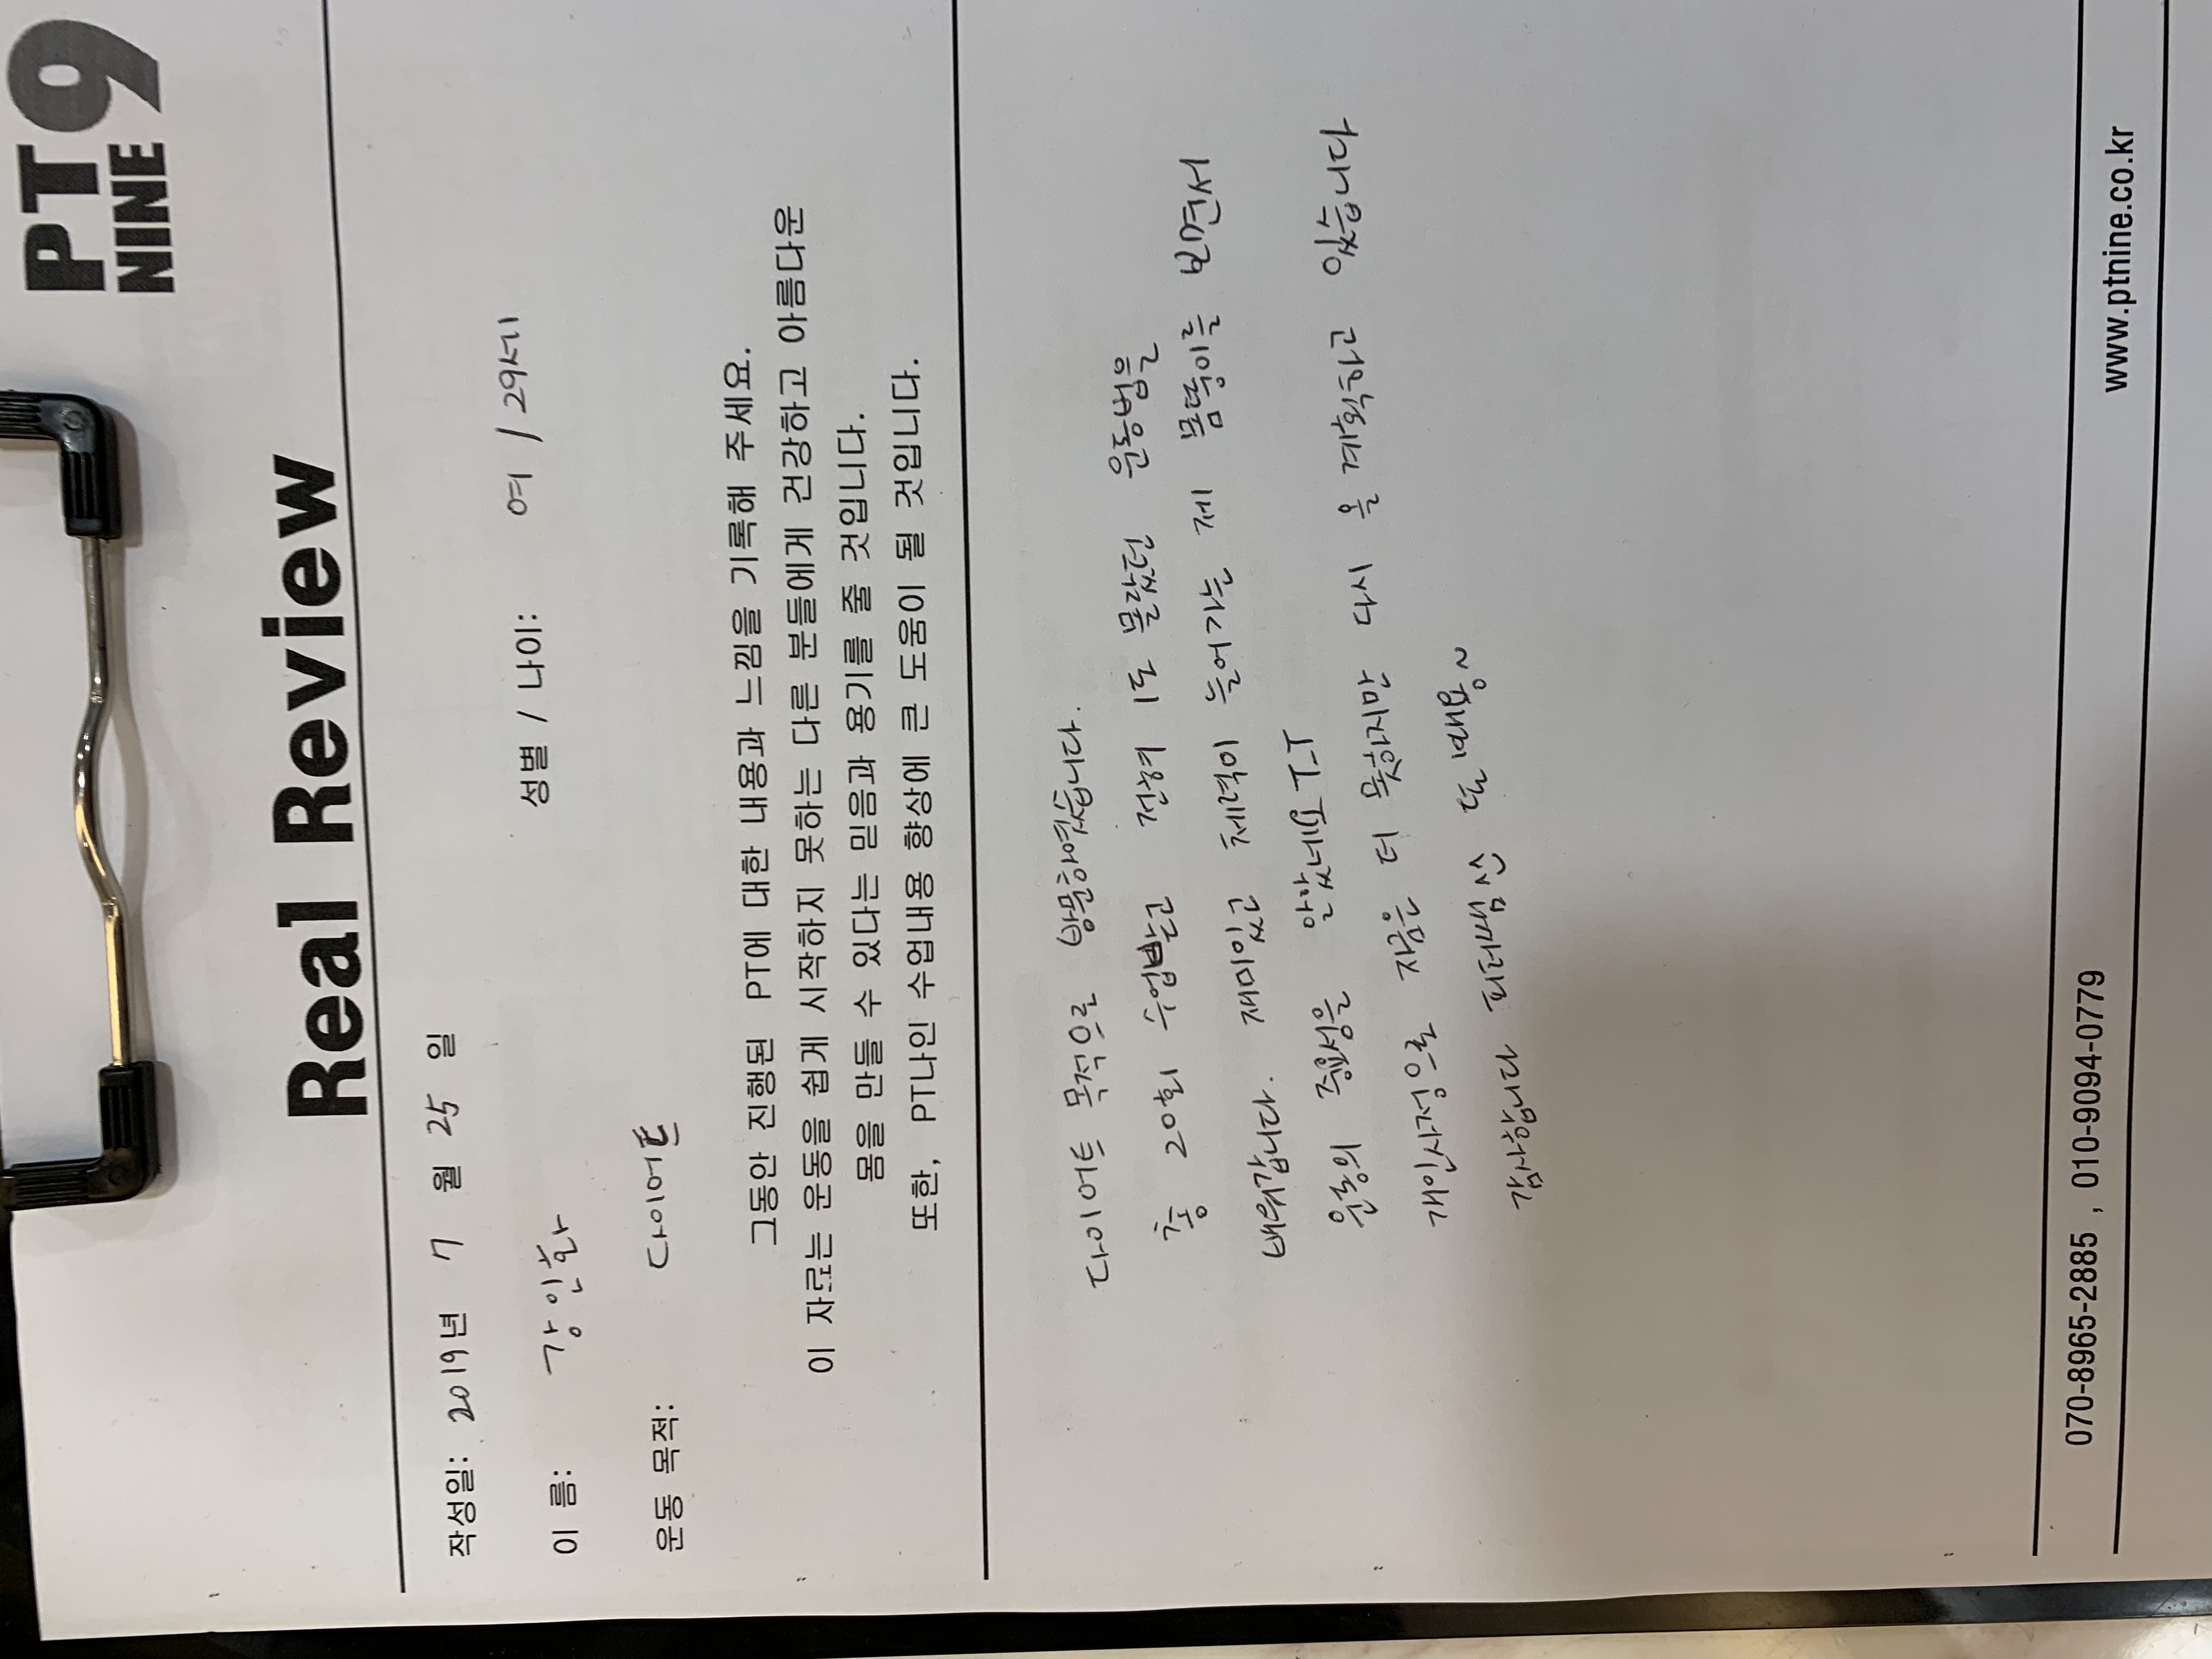 PT 9
NINE
Real Review
작성일: 2019년 7 월 25 일
이 름: 강인환 성별 / 나이: 여 / 29세
운동 목적: 다이어트
그동안 진행된 PT에 대한 내용과 느낌을 기록해 주세요.
이 자료는 운동을 쉽게 시작하지 못하는 다른 분들에게 건강하고 아름다운
몸을 만들 수 있다는 믿음과 용기를 줄 것입니다.
또한, PT나인 수업내용 향상에 큰 도움이 될 것입니다.
다이어트 목적으로 방문하였습니다.
총 20회 수업받고 전혀 1도 몰랐던 운동법을
배워갑니다. 재미있고 체력이 늘어가는 제 몸뚱이를 보면서
운동의 중요성을 알았네요 T_T
개인사정으로 지금은 더 못하지만 다시 올 계획하고 있습니다
감사합니다 피터쌤 신 달 땜용~